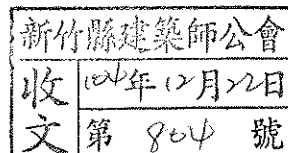 新竹縣建築師公會
收文
104年12月22日
第 804 號